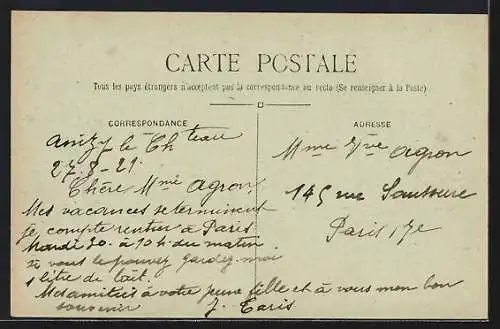 CARTE POSTALE
Tous les pays étrangers n'acceptent pas la correspondance au recto (Se renseigner à la Poste)
CORRESPONDANCE
ADRESSE
anizy le Chateau
27.8-21.
Chère Mme Agron
Mes vacances se terminent
je compte rentrer à Paris
Mardi 30. à 10 h du matin.
si vous le pouvez gardez-moi
1 litre de lait.
à votre jeune fille et à vous mon bon
souvenir
J.
Mme Vve Agron
145 rue Saussure
Paris 17e